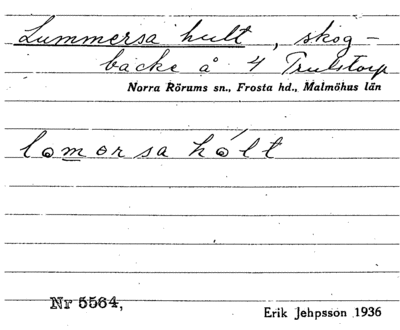 Lummersa hult, skog-
backe å 4 Trulstorp
Norra Rörums sn., Frosta hd., Malmöhus län
lomersa hólt
Nr 5564,
Erik Jehpsson 1936